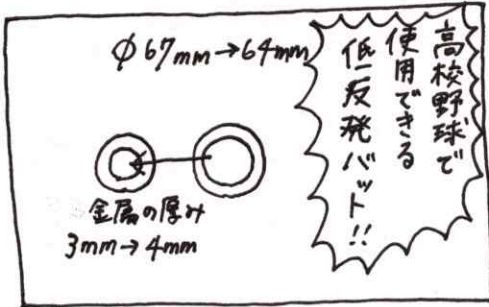 高校野球で
使用できる
低反発バット!!
φ67mm→64mm
金属の厚み
3mm→4mm